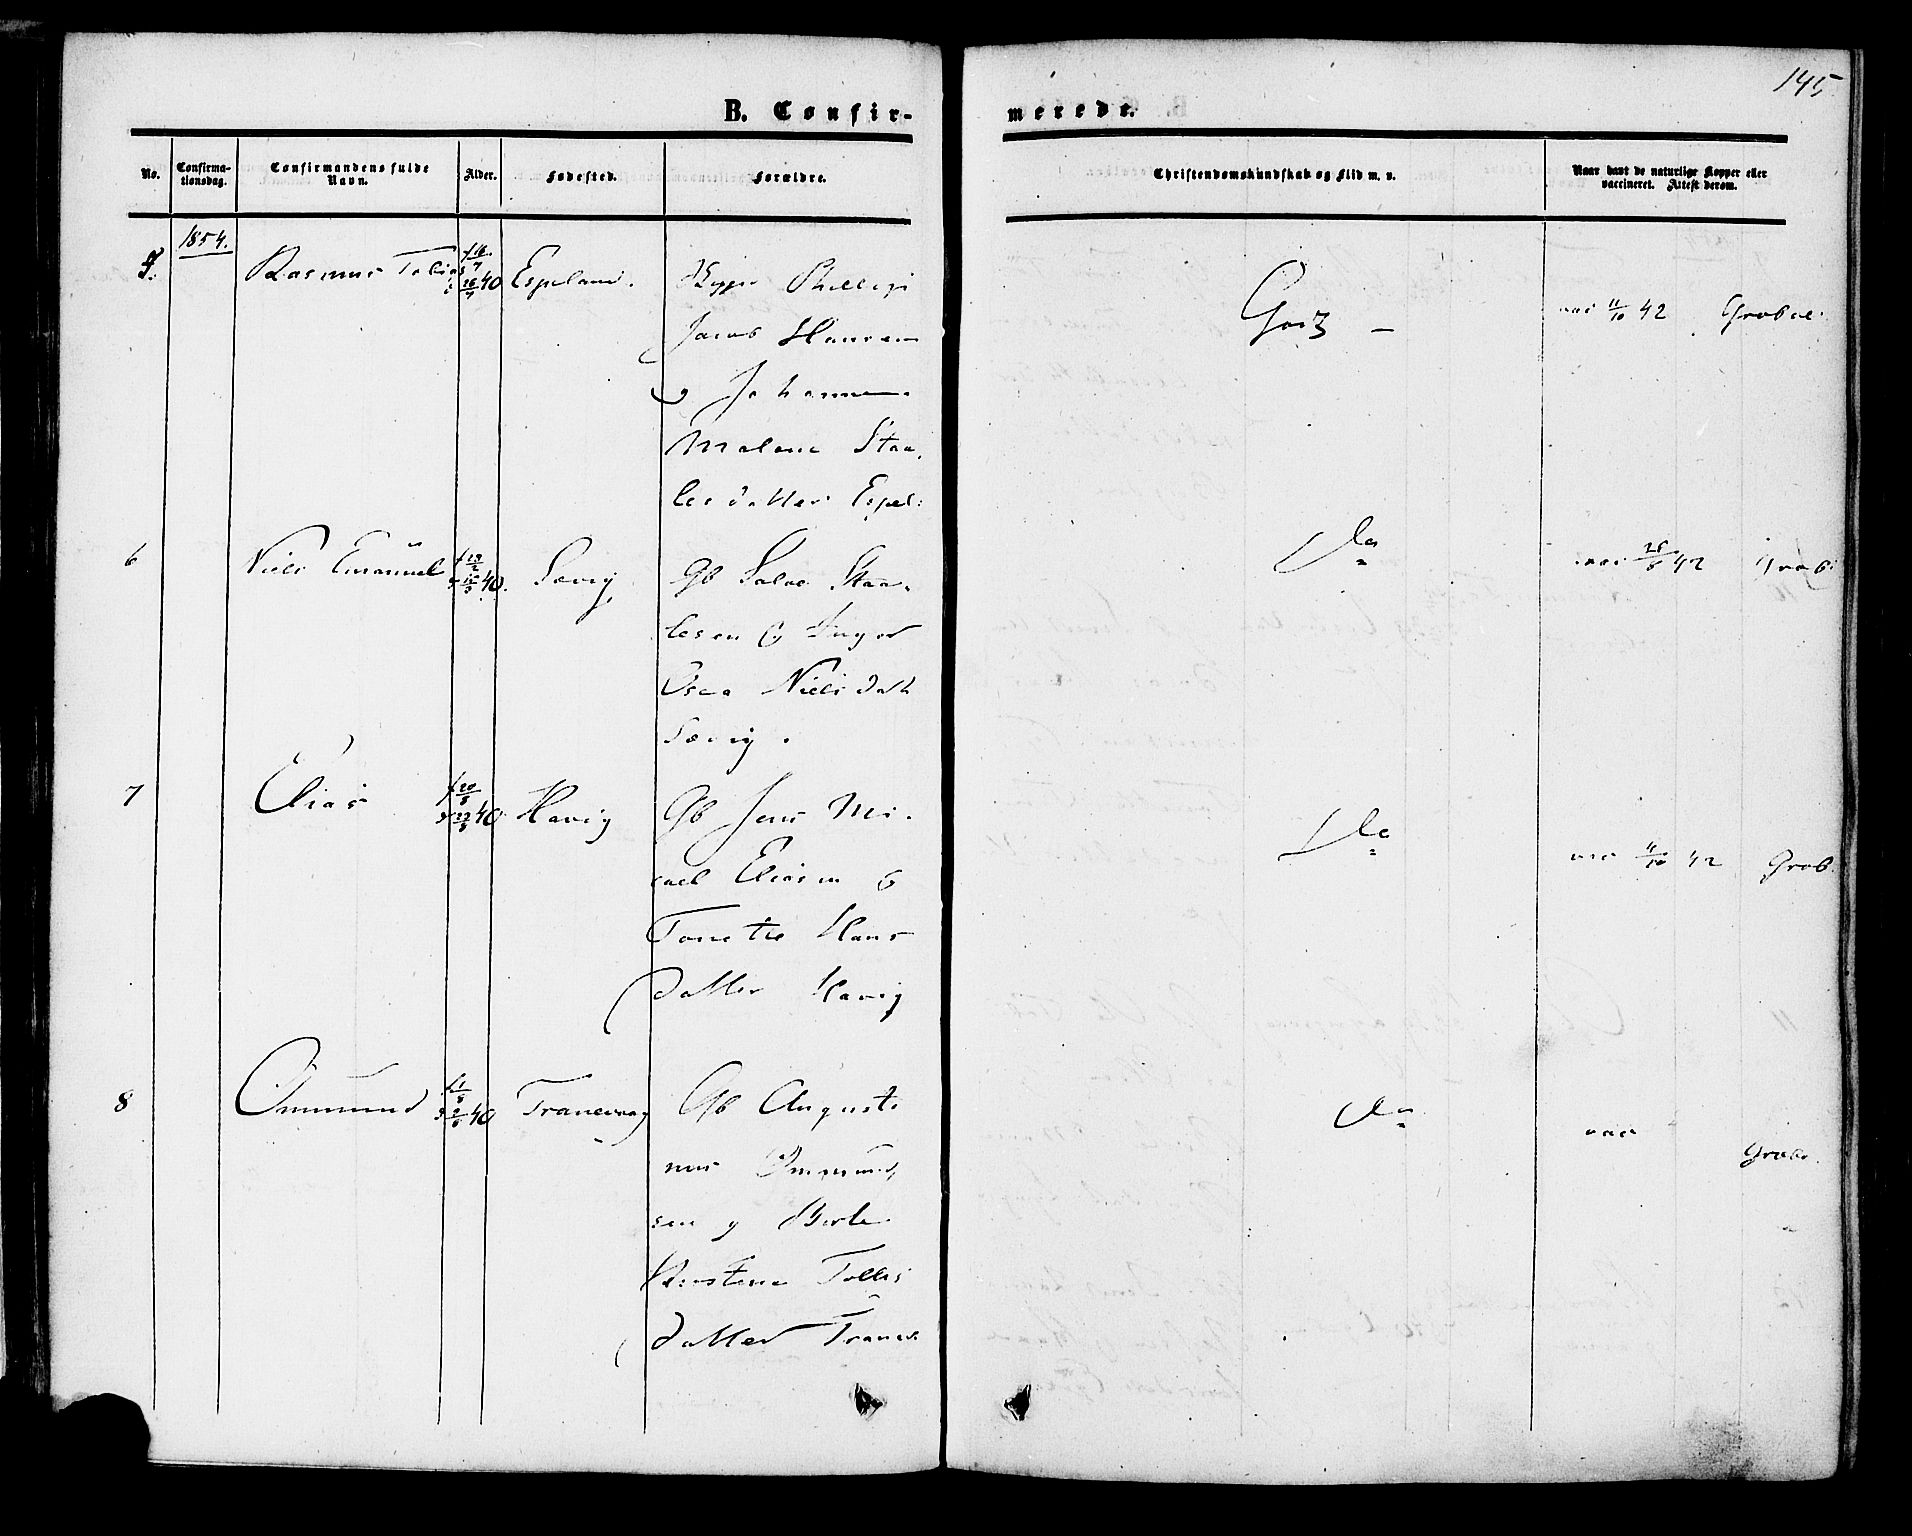 145
B. Confir-
merede.
No.
Confirma-
tionsdag.
Confirmandens fulde
Navn.
Alder.
Fødested.
Forældre.
Christendomskundskab og Flid m. v.
Naar havt de naturlige Kopper eller
vaccineret. Attest derom.
1854.
5.
Rasmus Tobias
f 16/7
d 26/7 40
Espeland.
Skipper Phillip
Jacob Hansen
og Johanne
Malene Staa-
lesdatter Espel:
Godt –
vac 11/10 42
Grobel:
6
Niels Emanuel
40.
Sævig
Gb Salve Staa-
lesen og Inger
Osea Nielsdatt
Sævig.
Do
vac 42
Grob:
7
Elias
40
Havig
Gb Jens Mi-
cael Eliasen og
Tonette Hans
datter Havig
Do
vac 11/10 42
Grob.
8
Ommund
40
Tranevaag
Gb Augusti
nus Ommund
sen og Berte
Kirstene Tollis
datter Tranev.
Do
vac
Grobe.